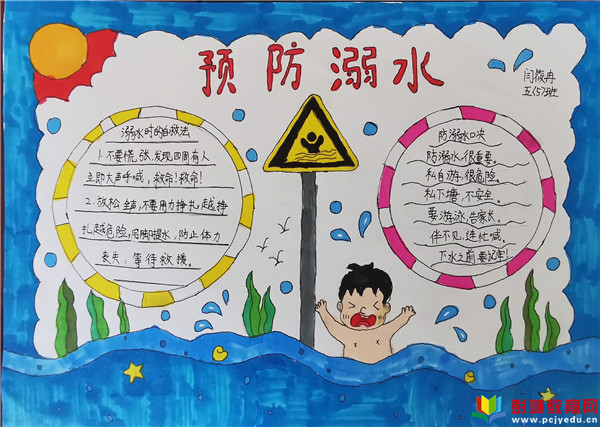 预防溺水
闫俊冉
五(5)班
溺水时的自救法
1.不要慌张,发现四周有人
立即大声呼喊,救命!救命!
2.放松全部,不要用力挣扎越挣
扎越危险,用脚踢水,防止体力
丧失,等待救援。
防溺水口决
防溺水,很重要。
私自游,很危险。
私下塘,不安全。
要游泳,告家长。
伴不见,连忙喊。
下水之前要记牢!
彭城教育网
www.pcjyedu.cn